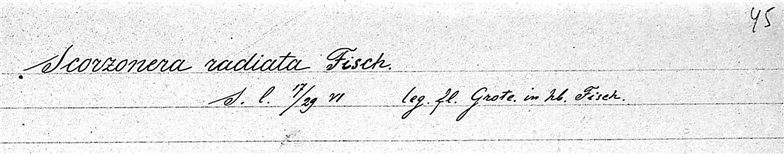 45
Scorzonera radiata Fisch.
S. l. 17/29 VI leg. fl. Grote. in hb. Fisch.